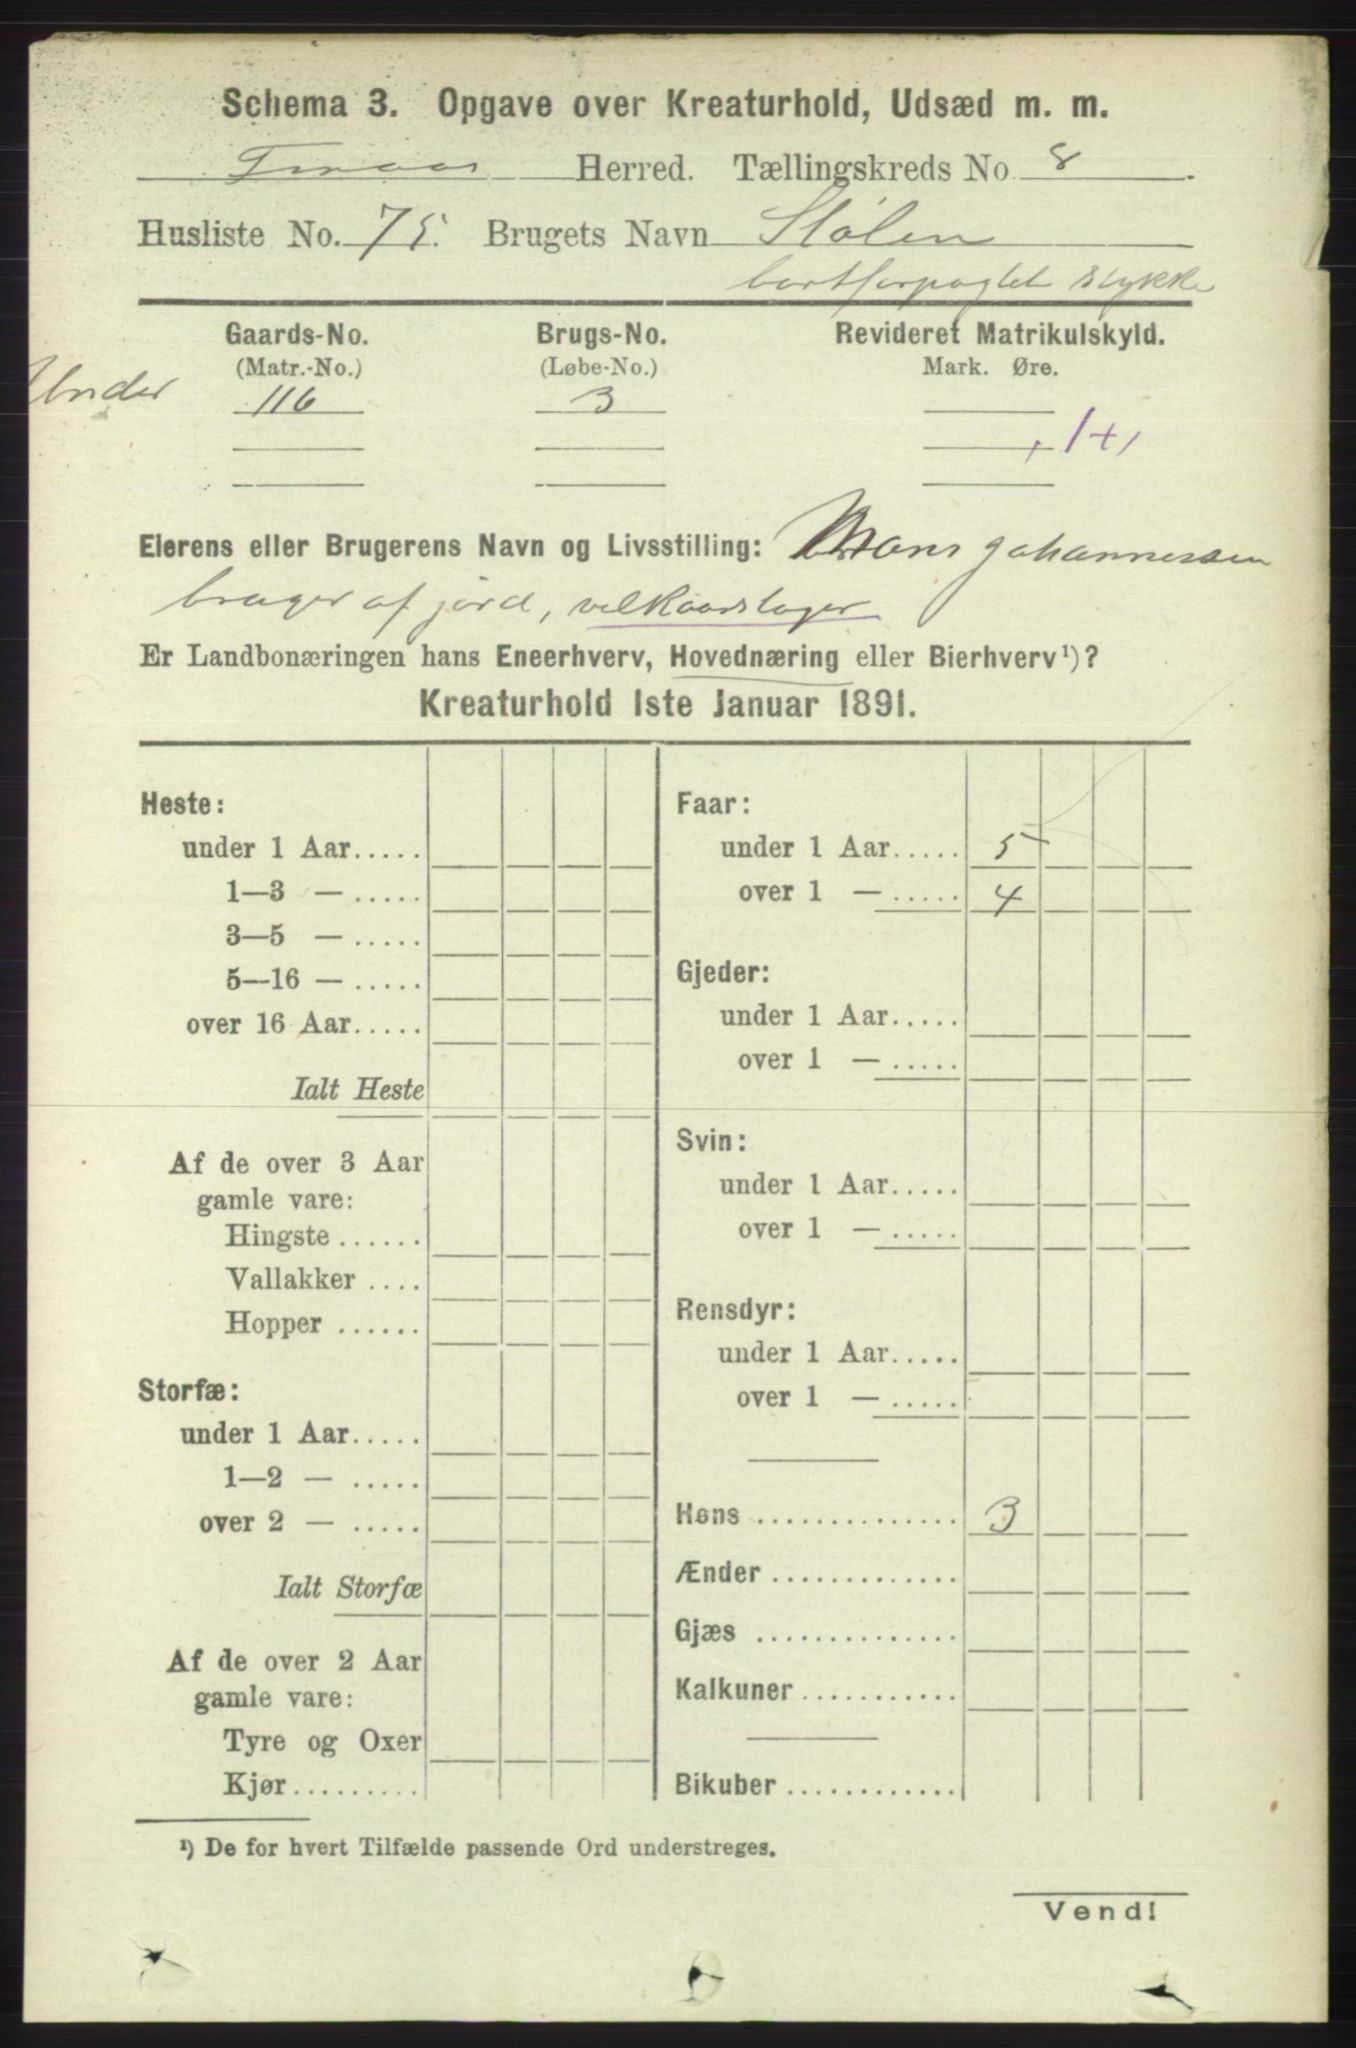 Schema 3. Opgave over Kreaturhold, Udsæd m. m.
Finaas Herred. Tællingskreds No. 8.
Husliste No. 75. Brugets Navn Stölen
bortforpagtet stykke
Gaards-No. Brugs-No. Revideret Matrikulskyld.
(Matr.-No.) (Løbe-No.) Mark. Øre.
Under 116 3
Eierens eller Brugerens Navn og Livsstilling: Mons Johannessen
bruger af jörd, vilkaarstager
Er Landbonæringen hans Eneerhverv, Hovednæring eller Bierhverv¹)?
Kreaturhold 1ste Januar 1891.
Heste:
under 1 Aar.....
1—3 — .....
3—5 — .....
5—16 — .....
over 16 Aar.....
Ialt Heste
Af de over 3 Aar
gamle vare:
Hingste ......
Vallakker ....
Hopper ......
Storfæ:
under 1 Aar.....
1—2 — .....
over 2 — .....
Ialt Storfæ
Af de over 2 Aar
gamle vare:
Tyre og Oxer
Kjør.........
Faar:
under 1 Aar..... 5
over 1 — ..... 4
Gjeder:
under 1 Aar.....
over 1 — .....
Svin:
under 1 Aar.....
over 1 — .....
Rensdyr:
under 1 Aar.....
over 1 — .....
Høns .............. 3
Ænder .............
Gjæs ..............
Kalkuner...........
Bikuber ............
¹) De for hvert Tilfælde passende Ord understreges.
Vend!